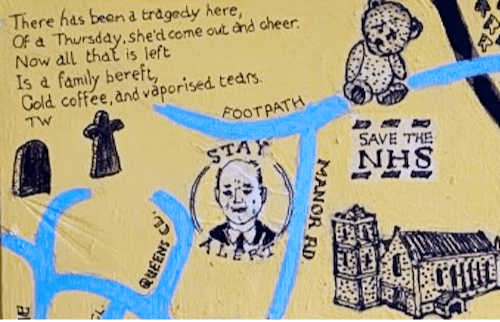 There has been a tragedy here,
Of a Thursday, she'd come out and cheer.
Now all that is left
Is a family bereft,
Cold coffee, and vaporised tears.
TW
FOOTPATH
SAVE THE
NHS
STAY
ALERT
MANOR RD
QUEENS